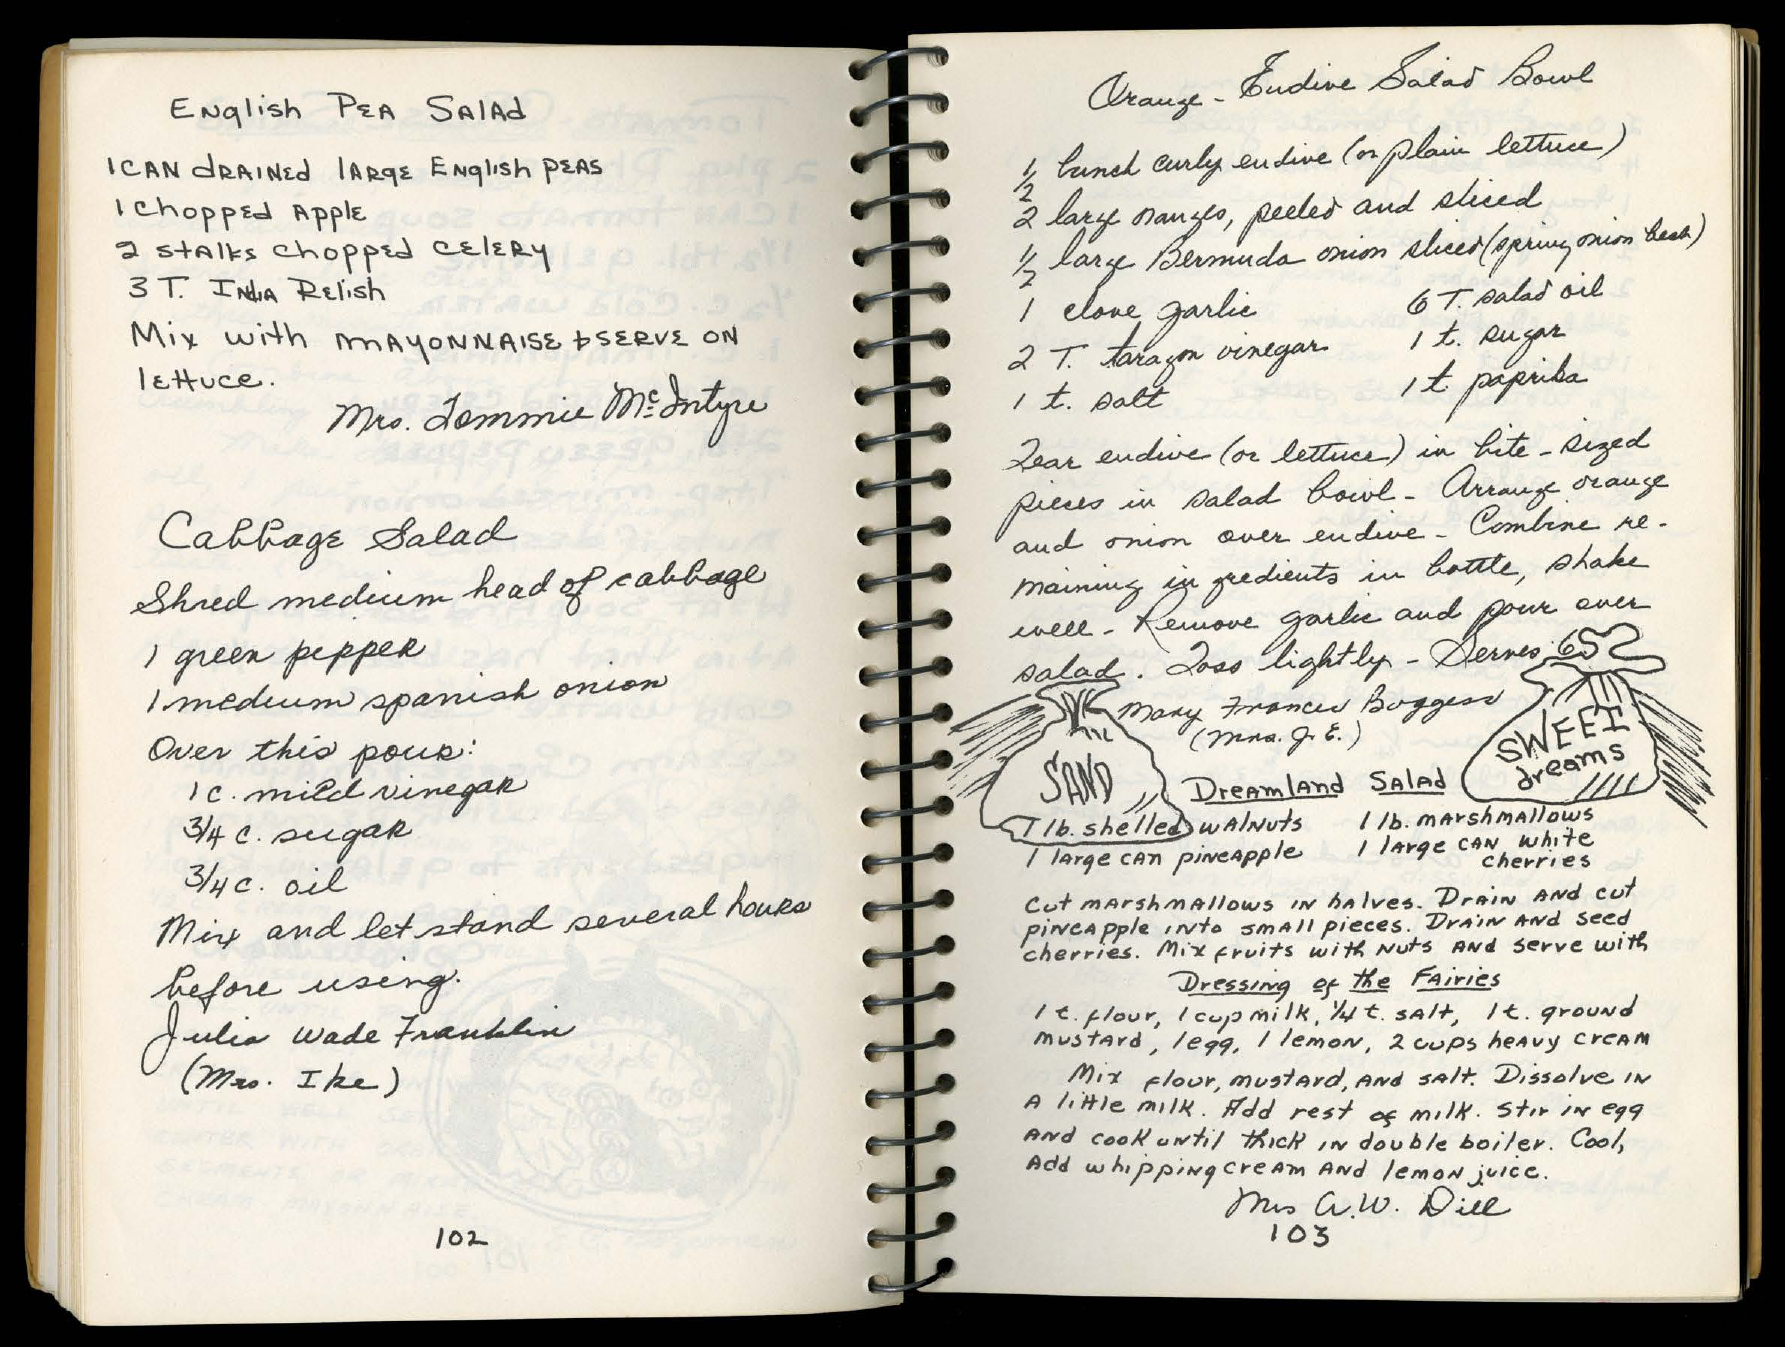 English Pea Salad
1 can drained large English peas
1 chopped apple
2 stalks chopped celery
3 T. India Relish
Mix with mayonnaise & serve on
lettuce.
Mrs. Tommie McIntyre
Cabbage Salad
Shred medium head of cabbage
1 green pepper
1 medium spanish onion
Over this pour:
1 c. mild vinegar
3/4 c. sugar
3/4 c. oil
Mix and let stand several hours
before using.
Julia Wade Franklin
(Mrs. Ike)
102
Orange - Endive Salad Bowl
1/2 bunch curly endive (or plain lettuce)
2 large oranges, peeled and sliced
1/2 large Bermuda onion sliced (spring onion best)
1 clove garlic 6 T. salad oil
2 T. taragon vinegar 1 t. sugar
1 t. salt 1 t. paprika
Tear endive (or lettuce) in bite-sized
pieces in salad bowl - Arrange orange
and onion over endive - Combine re-
maining ingredients in bottle, shake
well - Remove garlic and pour over
salad. Toss lightly - Serves 6
Mary Frances Boggess
(Mrs. J. E.)
SAND
SWEET
dreams
Dreamland Salad
1 lb. shelled walnuts 1 lb. marshmallows
1 large can pineapple 1 large can white
cherries
Cut marshmallows in halves. Drain and cut
pineapple into small pieces. Drain and seed
cherries. Mix fruits with nuts and serve with
Dressing of the Fairies
1 t. flour, 1 cup milk, 1/4 t. salt, 1 t. ground
mustard, 1 egg, 1 lemon, 2 cups heavy cream
Mix flour, mustard, and salt. Dissolve in
a little milk. Add rest of milk. Stir in egg
and cook until thick in double boiler. Cool,
Add whipping cream and lemon juice.
Mrs A.W. Dill
103